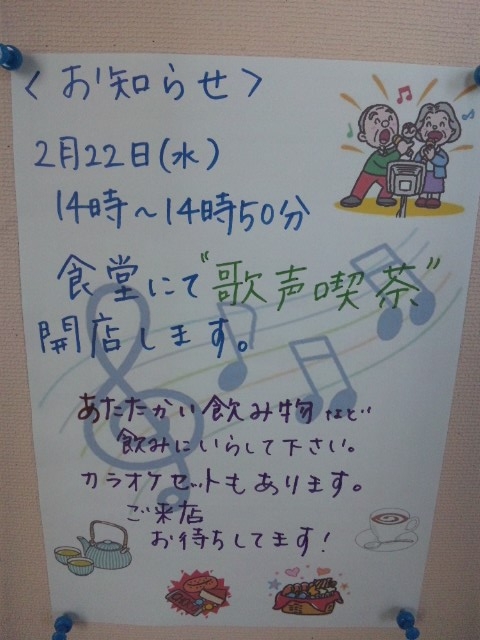 〈お知らせ〉
2月22日(水)
14時～14時50分
食堂にて"歌声喫茶"
開店します。
あたたかい飲み物など
飲みにいらして下さい。
カラオケセットもあります。
ご来店
お待ちしてます!